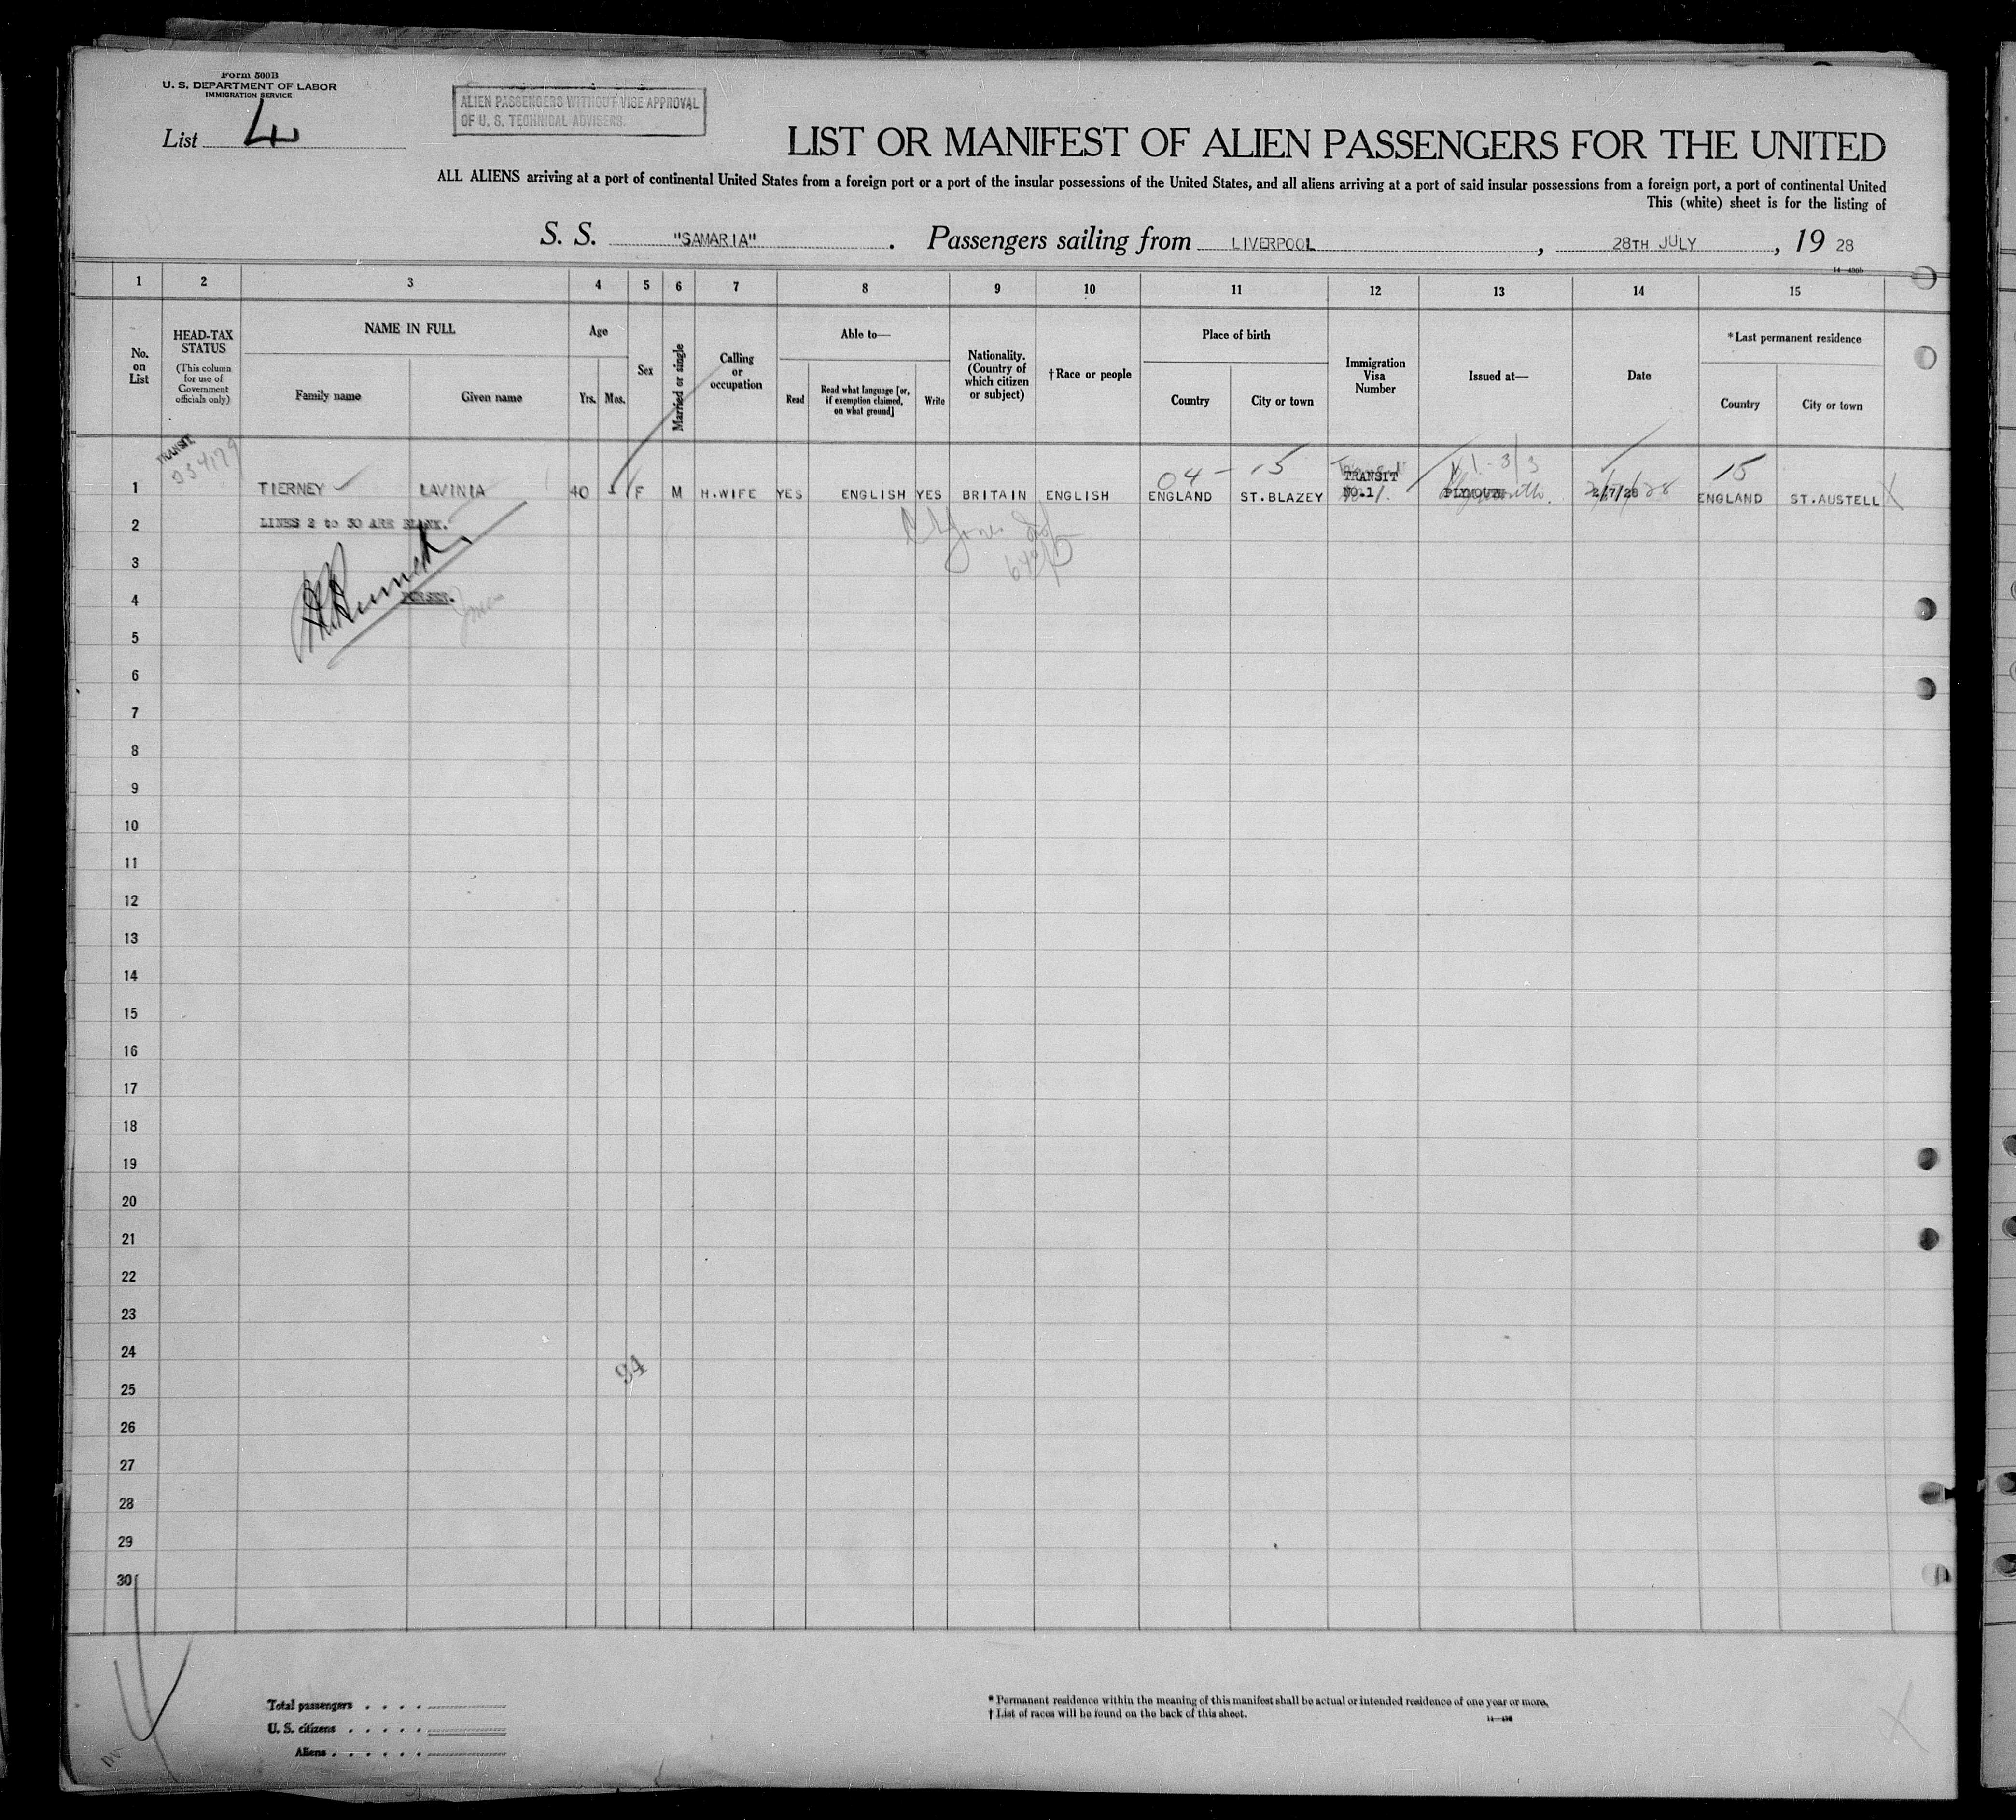 Form 500B
U. S. DEPARTMENT OF LABOR
IMMIGRATION SERVICE
List 4
ALIEN PASSENGERS WITHOUT VISE APPROVAL
OF U. S. TECHNICAL ADVISERS.
LIST OR MANIFEST OF ALIEN PASSENGERS FOR THE UNITED
ALL ALIENS arriving at a port of continental United States from a foreign port or a port of the insular possessions of the United States, and all aliens arriving at a port of said insular possessions from a foreign port, a port of continental United
This (white) sheet is for the listing of
S. S. "SAMARIA". Passengers sailing from LIVERPOOL, 28TH JULY, 19 28
1 2 3 4 5 6 7 8 9 10 11 12 13 14 15
No. on List
HEAD-TAX STATUS
(This column for use of Government officials only)
NAME IN FULL
Family name Given name
Age
Yrs. Mos.
Sex
Married or single
Calling or occupation
Able to—
Read
Read what language [or, if exemption claimed, on what ground]
Write
Nationality. (Country of which citizen or subject)
†Race or people
Place of birth
Country City or town
Immigration Visa Number
Issued at—
Date
*Last permanent residence
Country City or town
TRANSIT
04 - 15 15
1 TIERNEY LAVINIA 40 F M H.WIFE YES ENGLISH YES BRITAIN ENGLISH ENGLAND ST.BLAZEY TRANSIT NO.1 PLYMOUTH 2/7/28 ENGLAND ST.AUSTELL
2 LINES 2 to 30 ARE BLANK.
3
4
5
6
7
8
9
10
11
12
13
14
15
16
17
18
19
20
21
22
23
24
94
25
26
27
28
29
30
Total passengers
U. S. citizens
Aliens
* Permanent residence within the meaning of this manifest shall be actual or intended residence of one year or more.
† List of races will be found on the back of this sheet.